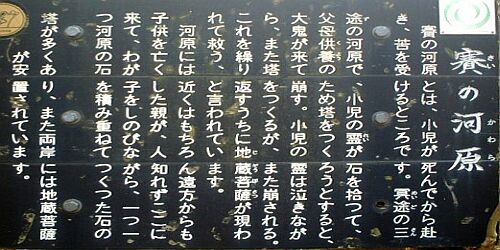 賽の河原
さい かわら
賽の河原とは、小児が死んでから赴
き、苦を受けるところです。冥途の三
途の河原で、小児の霊が石を拾って、
父母供養のため塔をつくろうとすると、
大鬼が来て崩す。小児の霊は泣きなが
ら、また塔をつくるが、また崩される。
これを繰り返すうちに地蔵菩薩が現わ
れて救う、と言われています。
河原には近くはもちろん遠方からも
子供を亡くした親が、人知れずここに
来て、わが子をしのびながら、一つ一
つ河原の石を積み重ねてつくった石の
塔が多くあり、また両岸には地蔵菩薩
が安置されています。